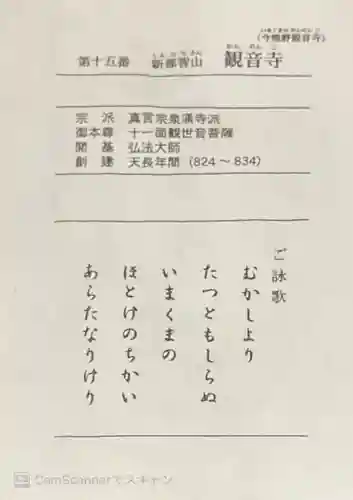 いまくまのかんのんじ
(今熊野観音寺)
しんなちさん かんのんじ
第十五番 新那智山 観音寺
宗派 真言宗泉涌寺派
御本尊 十一面観世音菩薩
開基 弘法大師
創建 天長年間 (824~834)
ご詠歌
むかしより
たつともしらぬ
いまくまの
ほとけのちかい
あらたなりけり
CamScannerでスキャン